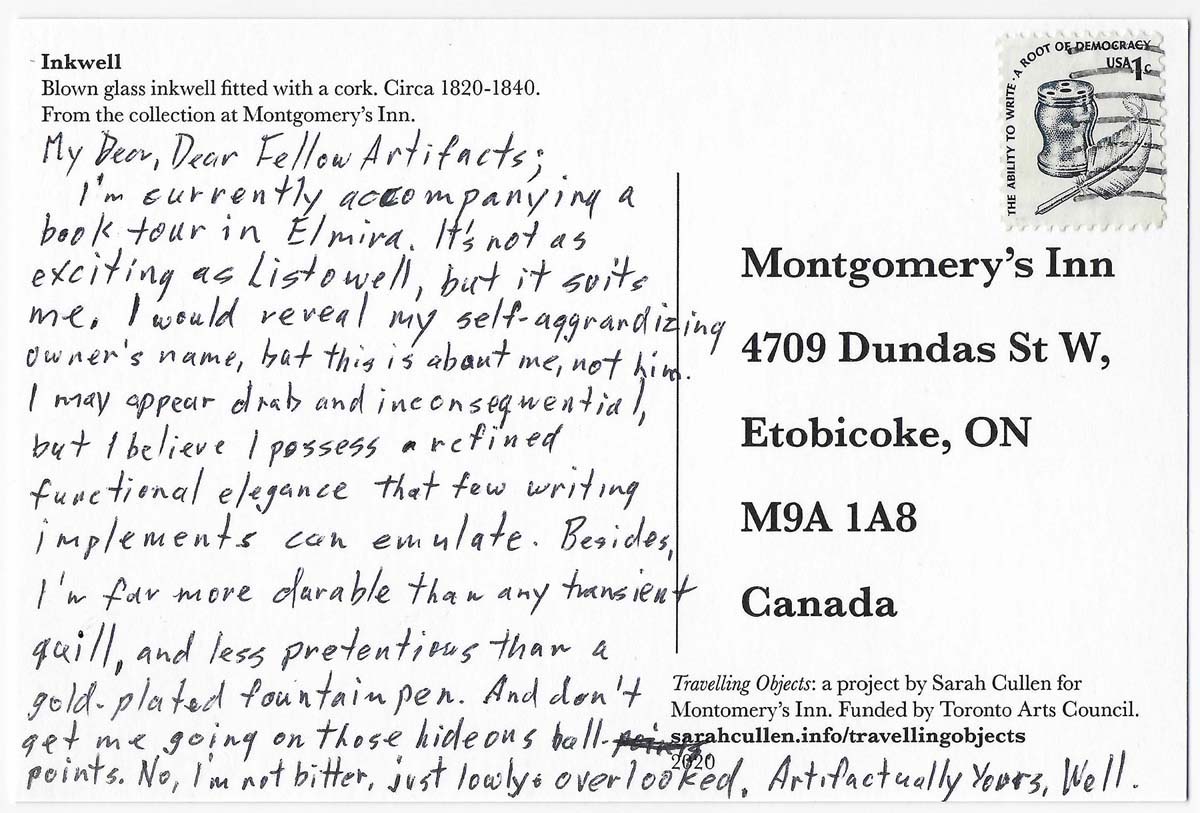 Inkwell
Blown glass inkwell fitted with a cork. Circa 1820-1840.
From the collection at Montgomery's Inn.
My Dear, Dear Fellow Artifacts;
I'm currently accompanying a
book tour in Elmira. It's not as
exciting as Listowell, but it suits
me. I would reveal my self-aggrandizing
owner's name, but this is about me, not him.
I may appear drab and inconsequential,
but I believe I possess a refined
functional elegance that few writing
implements can emulate. Besides,
I'm far more durable than any transient
quill, and less pretentious than a
gold-plated fountain pen. And don't
get me going on those hideous ball-
points. No, I'm not bitter, just lowly & overlooked. Artifactually Yours, Well.
THE ABILITY TO WRITE · A ROOT OF DEMOCRACY
USA 1c
Montgomery's Inn
4709 Dundas St W,
Etobicoke, ON
M9A 1A8
Canada
Travelling Objects: a project by Sarah Cullen for
Montomery's Inn. Funded by Toronto Arts Council.
sarahcullen.info/travellingobjects
2020